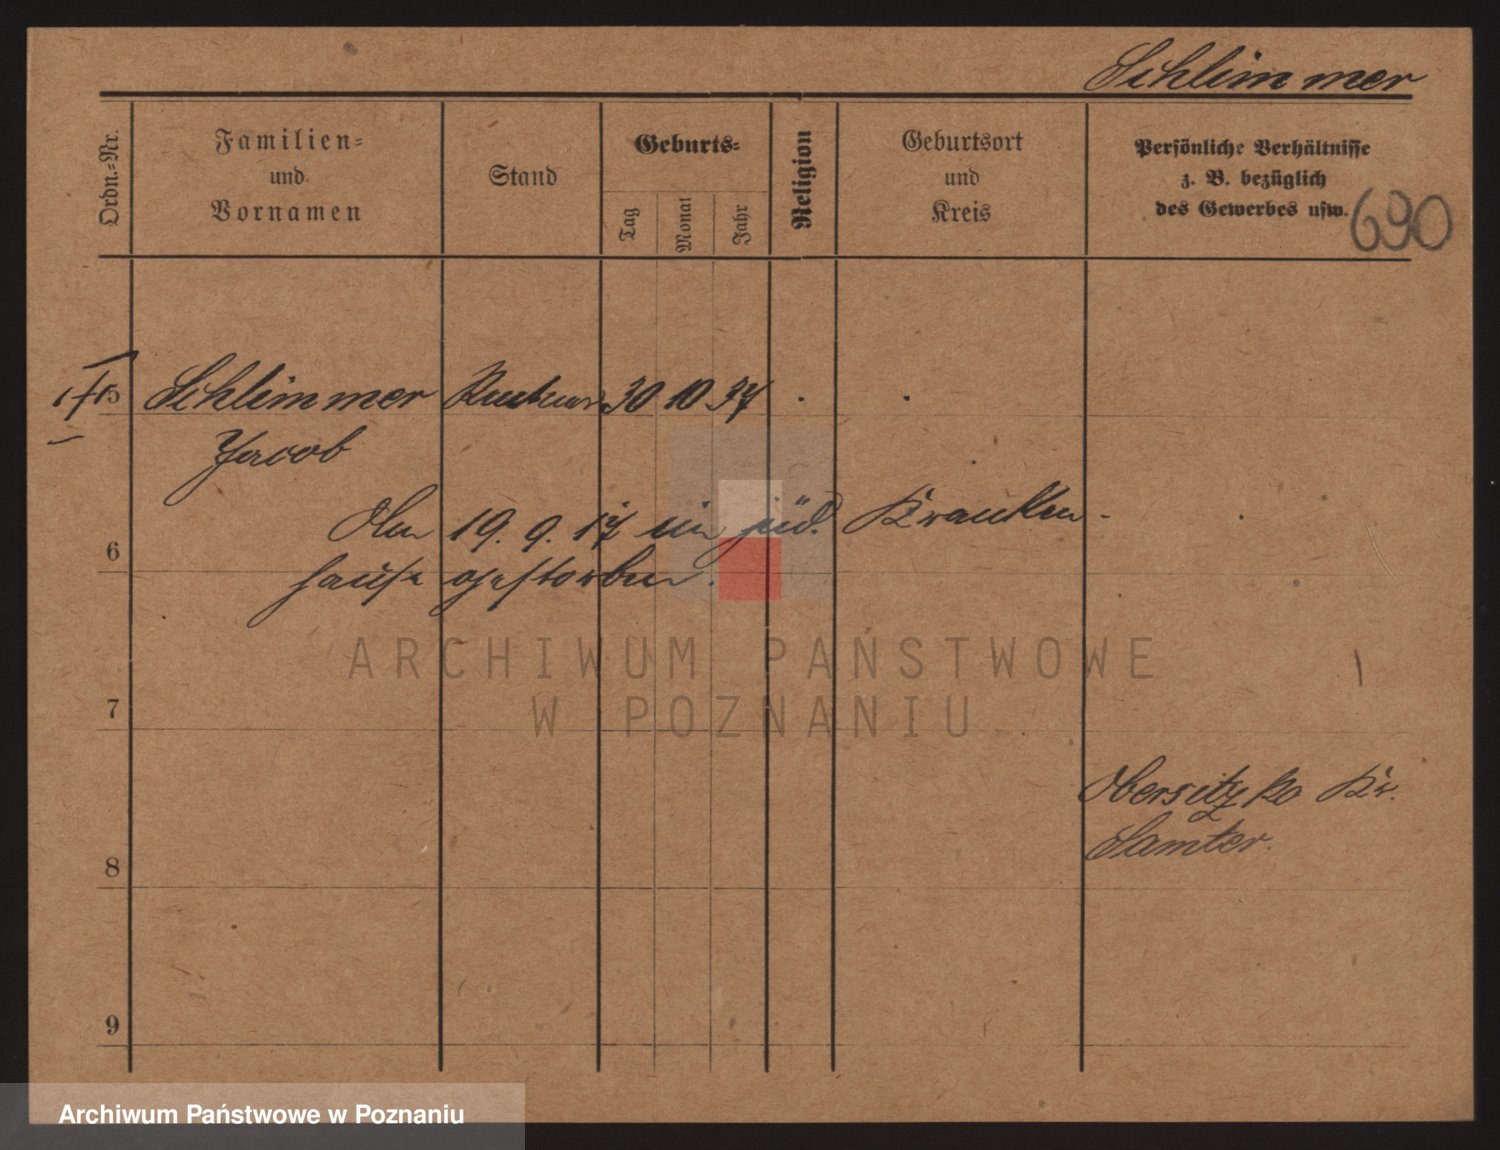 Schlimmer
Ordn.-Nr.
Familien-
und
Vornamen
Stand
Geburts-
Tag
Monat
Jahr
Religion
Geburtsort
und
Kreis
Persönliche Verhältnisse
z. B. bezüglich
des Gewerbes usw.
690
5 Schlimmer 30 10 37
Jacob
19. 9. 17 im jüd. Kranken-
6
hause gestorben.
ARCHIWUM PAŃSTWOWE
W POZNANIU
7
Obersitzko Kr.
Samter.
8
9
Archiwum Państwowe w Poznaniu